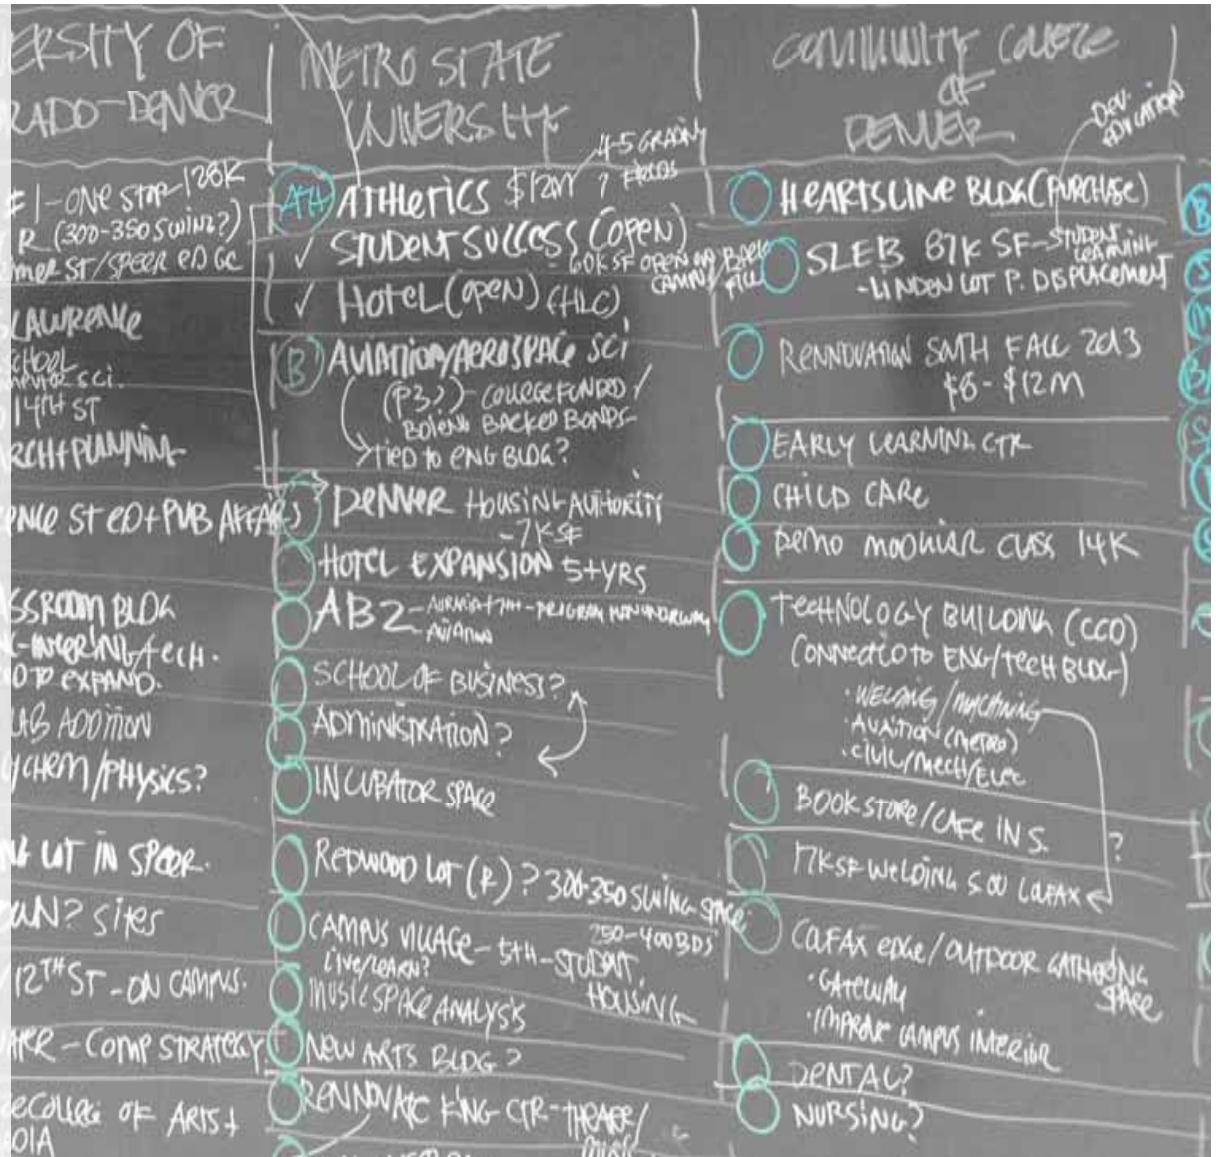 ERSITY OF
RADO-DENVER
# 1-ONE STOP-128K
R (300-350 SWING?)
ST/SPEER EDGE
LAWRENCE
SCHOOL
SCI.
14TH ST
ARCH+PLANNING
ENCE ST ED+PUB AFFAIRS
SSROOM BLDG
TECH.
TO EXPAND.
LAB ADDITION
CHEM/PHYSICS?
LOT IN SPEER.
SITES
12TH ST-ON CAMPUS.
-COMP STRATEGY
COLLEGE OF ARTS+
METRO STATE
UNIVERSITY
ATH
ATHLETICS $12M ?
4-5 GRASING
FIELDS
✓ STUDENT SUCCESS (OPEN)
-60K SF OPEN ON BACK
CAMPUS/ FILL
✓ HOTEL (OPEN) (HLC)
B
AVIATION/AEROSPACE SCI
(P3?)-COLLEGE FUNDED
BACKED BONDS-
TIED TO ENG BLDG?
DENVER HOUSING AUTHORITY
-7K SF
HOTEL EXPANSION 5+YRS
AB2-
AVIATION
SCHOOL OF BUSINESS?
ADMINISTRATION?
INCUBATOR SPACE
REDWOOD LOT (R) ? 300-350 SWING SPACE
CAMPUS VILLAGE-5TH-STUDENT
HOUSING
250-400BDS
LIVE/LEARN?
MUSIC SPACE ANALYSIS
NEW ARTS BLDG?
RENNOVATE KING CTR-THEATRE/
MUSIC
COMMUNITY COLLEGE
OF
DENVER
DEV.
EDUCATION
HEARTSLINE BLDG (PURCHASE)
SLEB 87K SF-STUDENT
LEARNING
-LINDEN LOT P. DISPLACEMENT
RENNOVATION SOUTH FALL 2013
$8-$12M
EARLY LEARNING CTR
CHILD CARE
DEMO MODULAR CLASS 14K
TECHNOLOGY BUILDING (CCD)
(CONNECTED TO ENG/TECH BLDG)
· WELDING/MACHINING
· AVAITION (METRO)
· CIVIL/MECH/ELEC
?
BOOKSTORE/CAFE IN S.
17K SF WELDING S OU COLFAX
COLFAX EDGE/OUTDOOR GATHERING
SPACE
· GATEWAY
· IMPROVE CAMPUS INTERIOR
DENTAL?
NURSING?